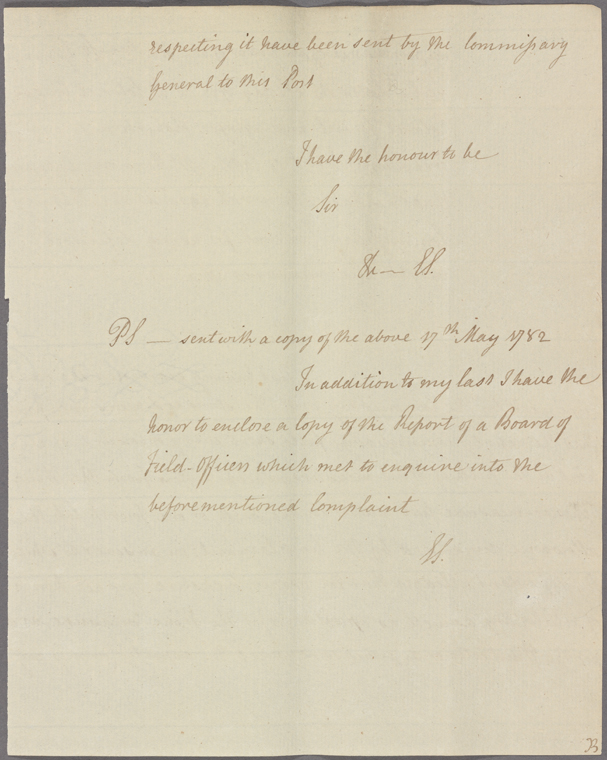 respecting it have been sent by the Commissary
General to this Post
I have the honour to be
Sir
&c — ES.
PS — sent with a copy of the above 17th May 1782
In addition to my last I have the
honor to enclose a Copy of the Report of a Board of
Field-Officers which met to enquire into the
beforementioned Complaint
ES.